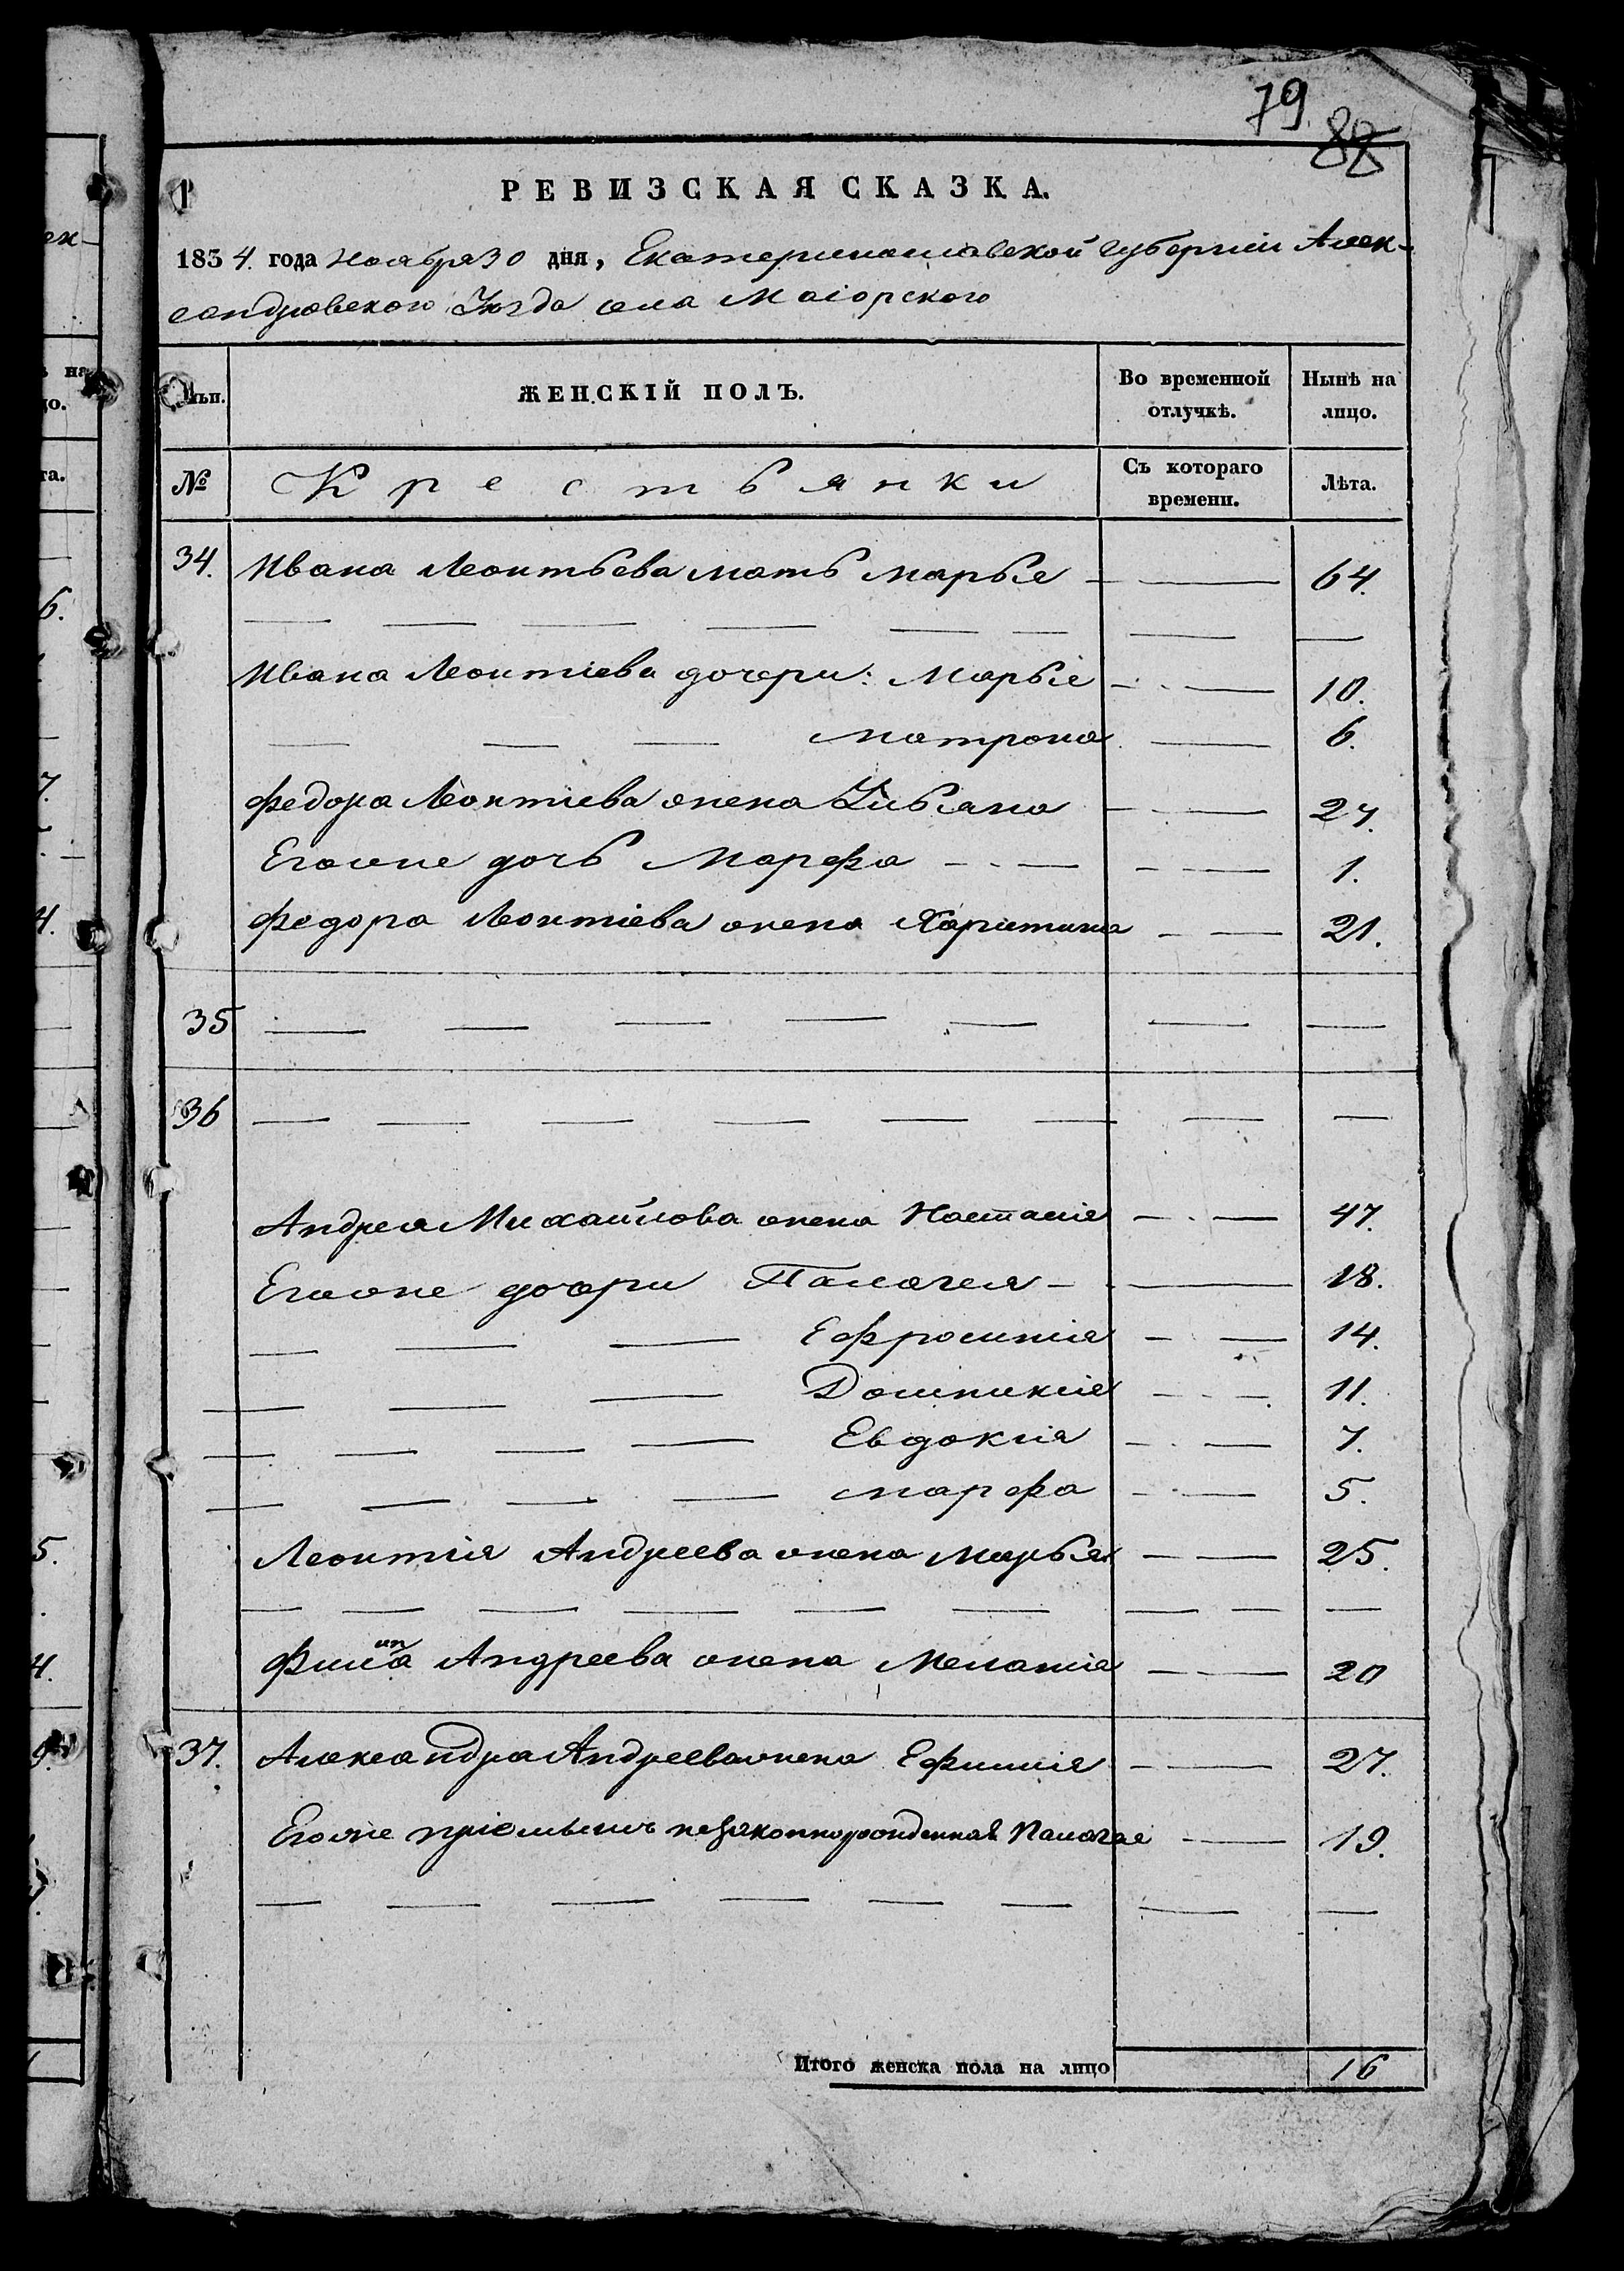 79.
88
РЕВИЗСКАЯ СКАЗКА.
1834. года ноября 30 дня, Екатеринославской губернiи Алек-
сандровского Уѣзда села Маiорского
ЖЕНСКIЙ ПОЛЪ.
Во временной отлучкѣ.
Нынѣ на лицо.
№
Крестьянки
Съ котораго времени.
Лѣта.
34. Ивана Леонтьева мать Марья 64.
Ивана Леонтiева дочери: Марья 10.
Матрона 6.
Федора Леонтiева жена Ульяна 27.
Егоже дочь Марфа 1.
Федора Леонтiева жена Харитина 21.
35
36
Андрея Михайлова жена Настасiя 47.
Егоже дочери Палагея 18.
Ефросинiя 14.
Домникiя 11.
Евдокiя 7.
Марфа 5.
Леонтiя Андреева жена Марья 25.
Филипа Андреева жена Меланiя 20
37. Александра Андреева жена Ефимiя 27.
Егоже прiемышъ незаконнорожденная Палагея 19.
Итого женска пола на лицо 16